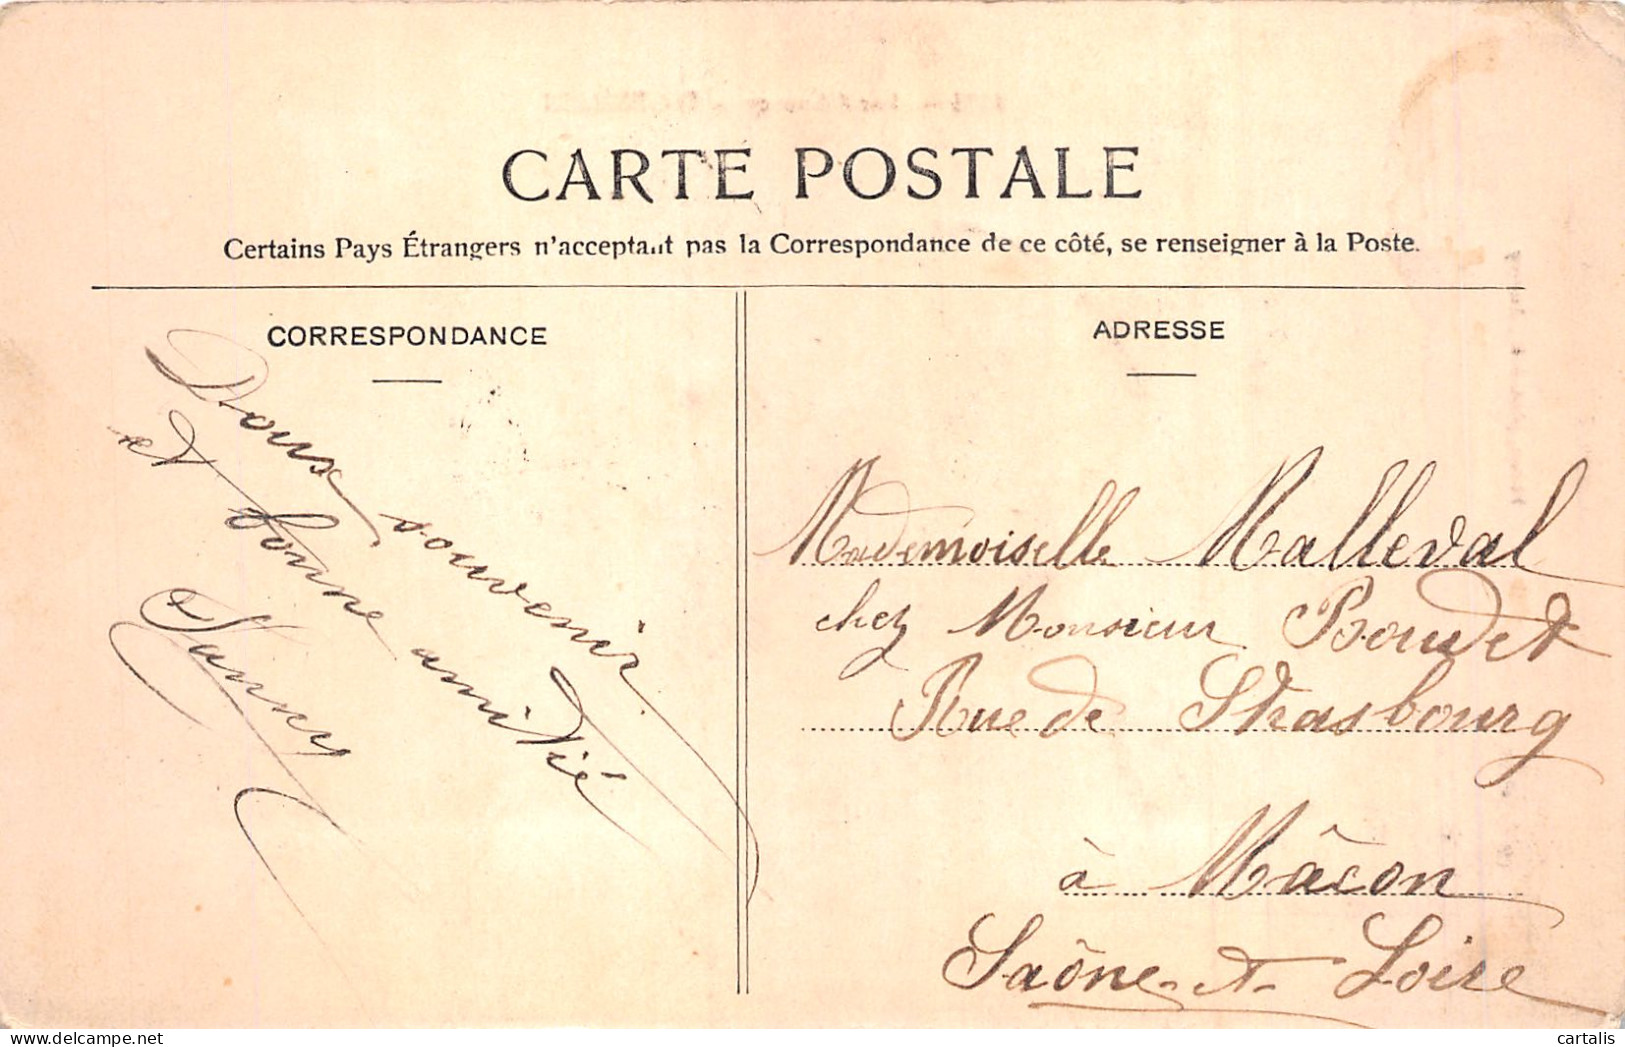 CARTE POSTALE
Certains Pays Étrangers n'acceptant pas la Correspondance de ce côté, se renseigner à la Poste.
CORRESPONDANCE
Doux souvenir
et bonne amitié
Fanny
ADRESSE
Mademoiselle Malleval
chez Monsieur Boudet
Rue de Strasbourg
à Mâcon
Saône-et-Loire
cartalis